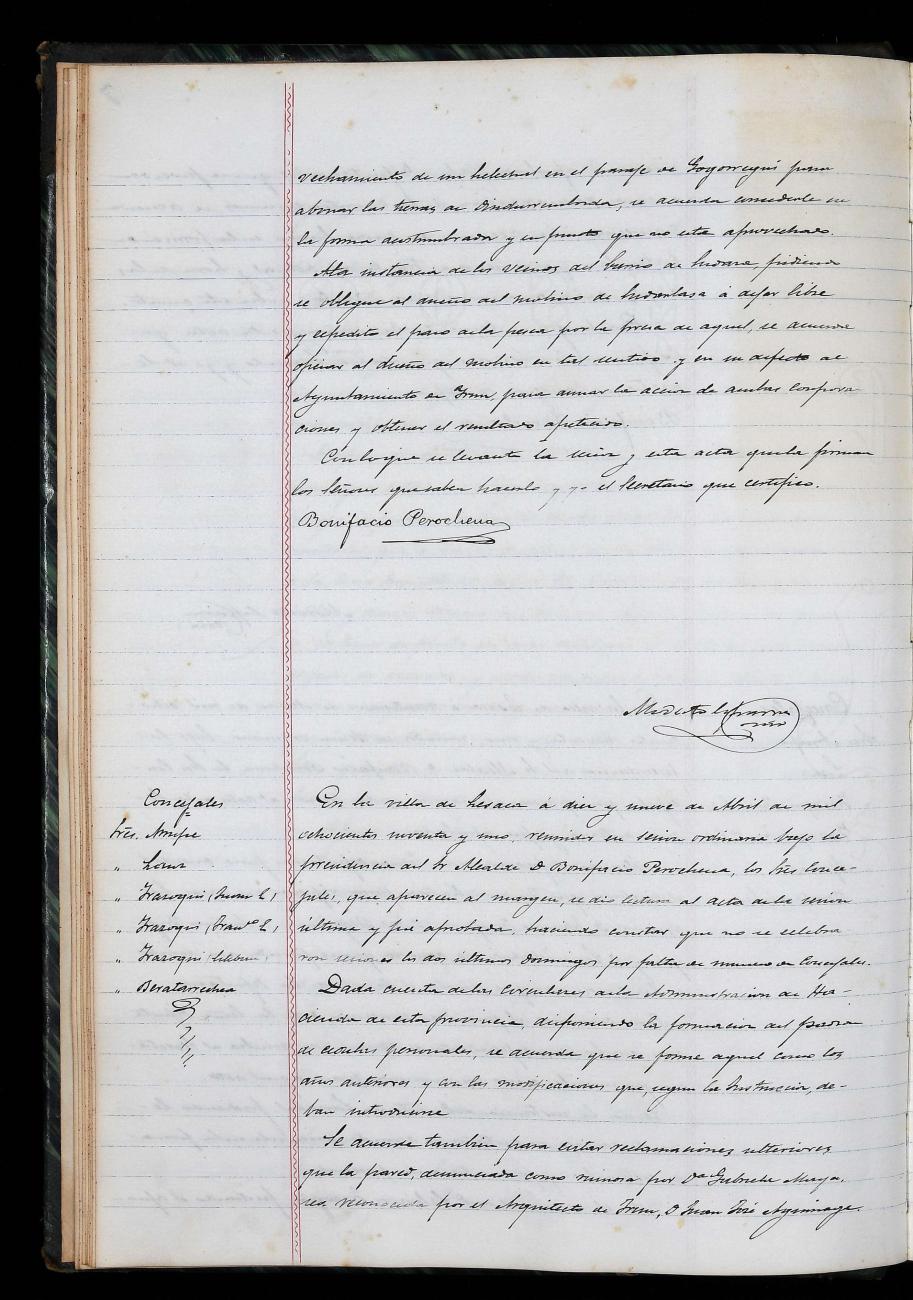 vechamiento de un helechal en el paraje de Gogorregui para
abonar las tierras de Dindurremborda, se acuerda concederle en
la forma acostumbrada y en punto que no esta aprovechado.
A la instancia de los vecinos del barrio de                pidiendo
se obligue al dueño del molino de                a dejar libre
y espedito el paso de la pesca por la presa de aquel, se acuerda
oficiar al dueño del molino en tal sentido y en su defecto al
Ayuntamiento de Irun, para aunar la accion de ambas Corpora-
ciones y obtener el resultado apetecido.
Con lo que se levanta la sesion y esta acta que la firman
los Señores que saben hacerlo y yo el Secretario que certifico.
Bonifacio Perochena
Modesto
Concejales
Sres.
"
" Irazoqui (Juan L)
" Irazoqui (Franco L)
" Irazoqui (Esteban)
" Beratarrechea
En la villa de Lesaca á diez y nueve de Abril de mil
ochocientos noventa y uno, reunidos en sesion ordinaria bajo la
presidencia del Sr Alcalde D Bonifacio Perochena, los Sres Conce-
jales, que aparecen al margen, se dio lectura al acta de la sesion
última y fué aprobada, haciendo constar que no se celebra
ron sesiones los dos últimos Domingos por falta de numero de Concejales.
Dada cuenta de las Circulares de la Administracion de Ha-
cienda de esta provincia, disponiendo la formacion del padron
de cedulas personales, se acuerda que se forme aquel como los
años anteriores y con las modificaciones que, segun la Instruccion, de-
ban introducirse
Se acuerda tambien para evitar reclamaciones ulteriores
que la pared, denunciada como ruinosa por Da Gabriela Maya,
sea reconocida por el Arquitecto de Irun, D Juan José Aguinaga.